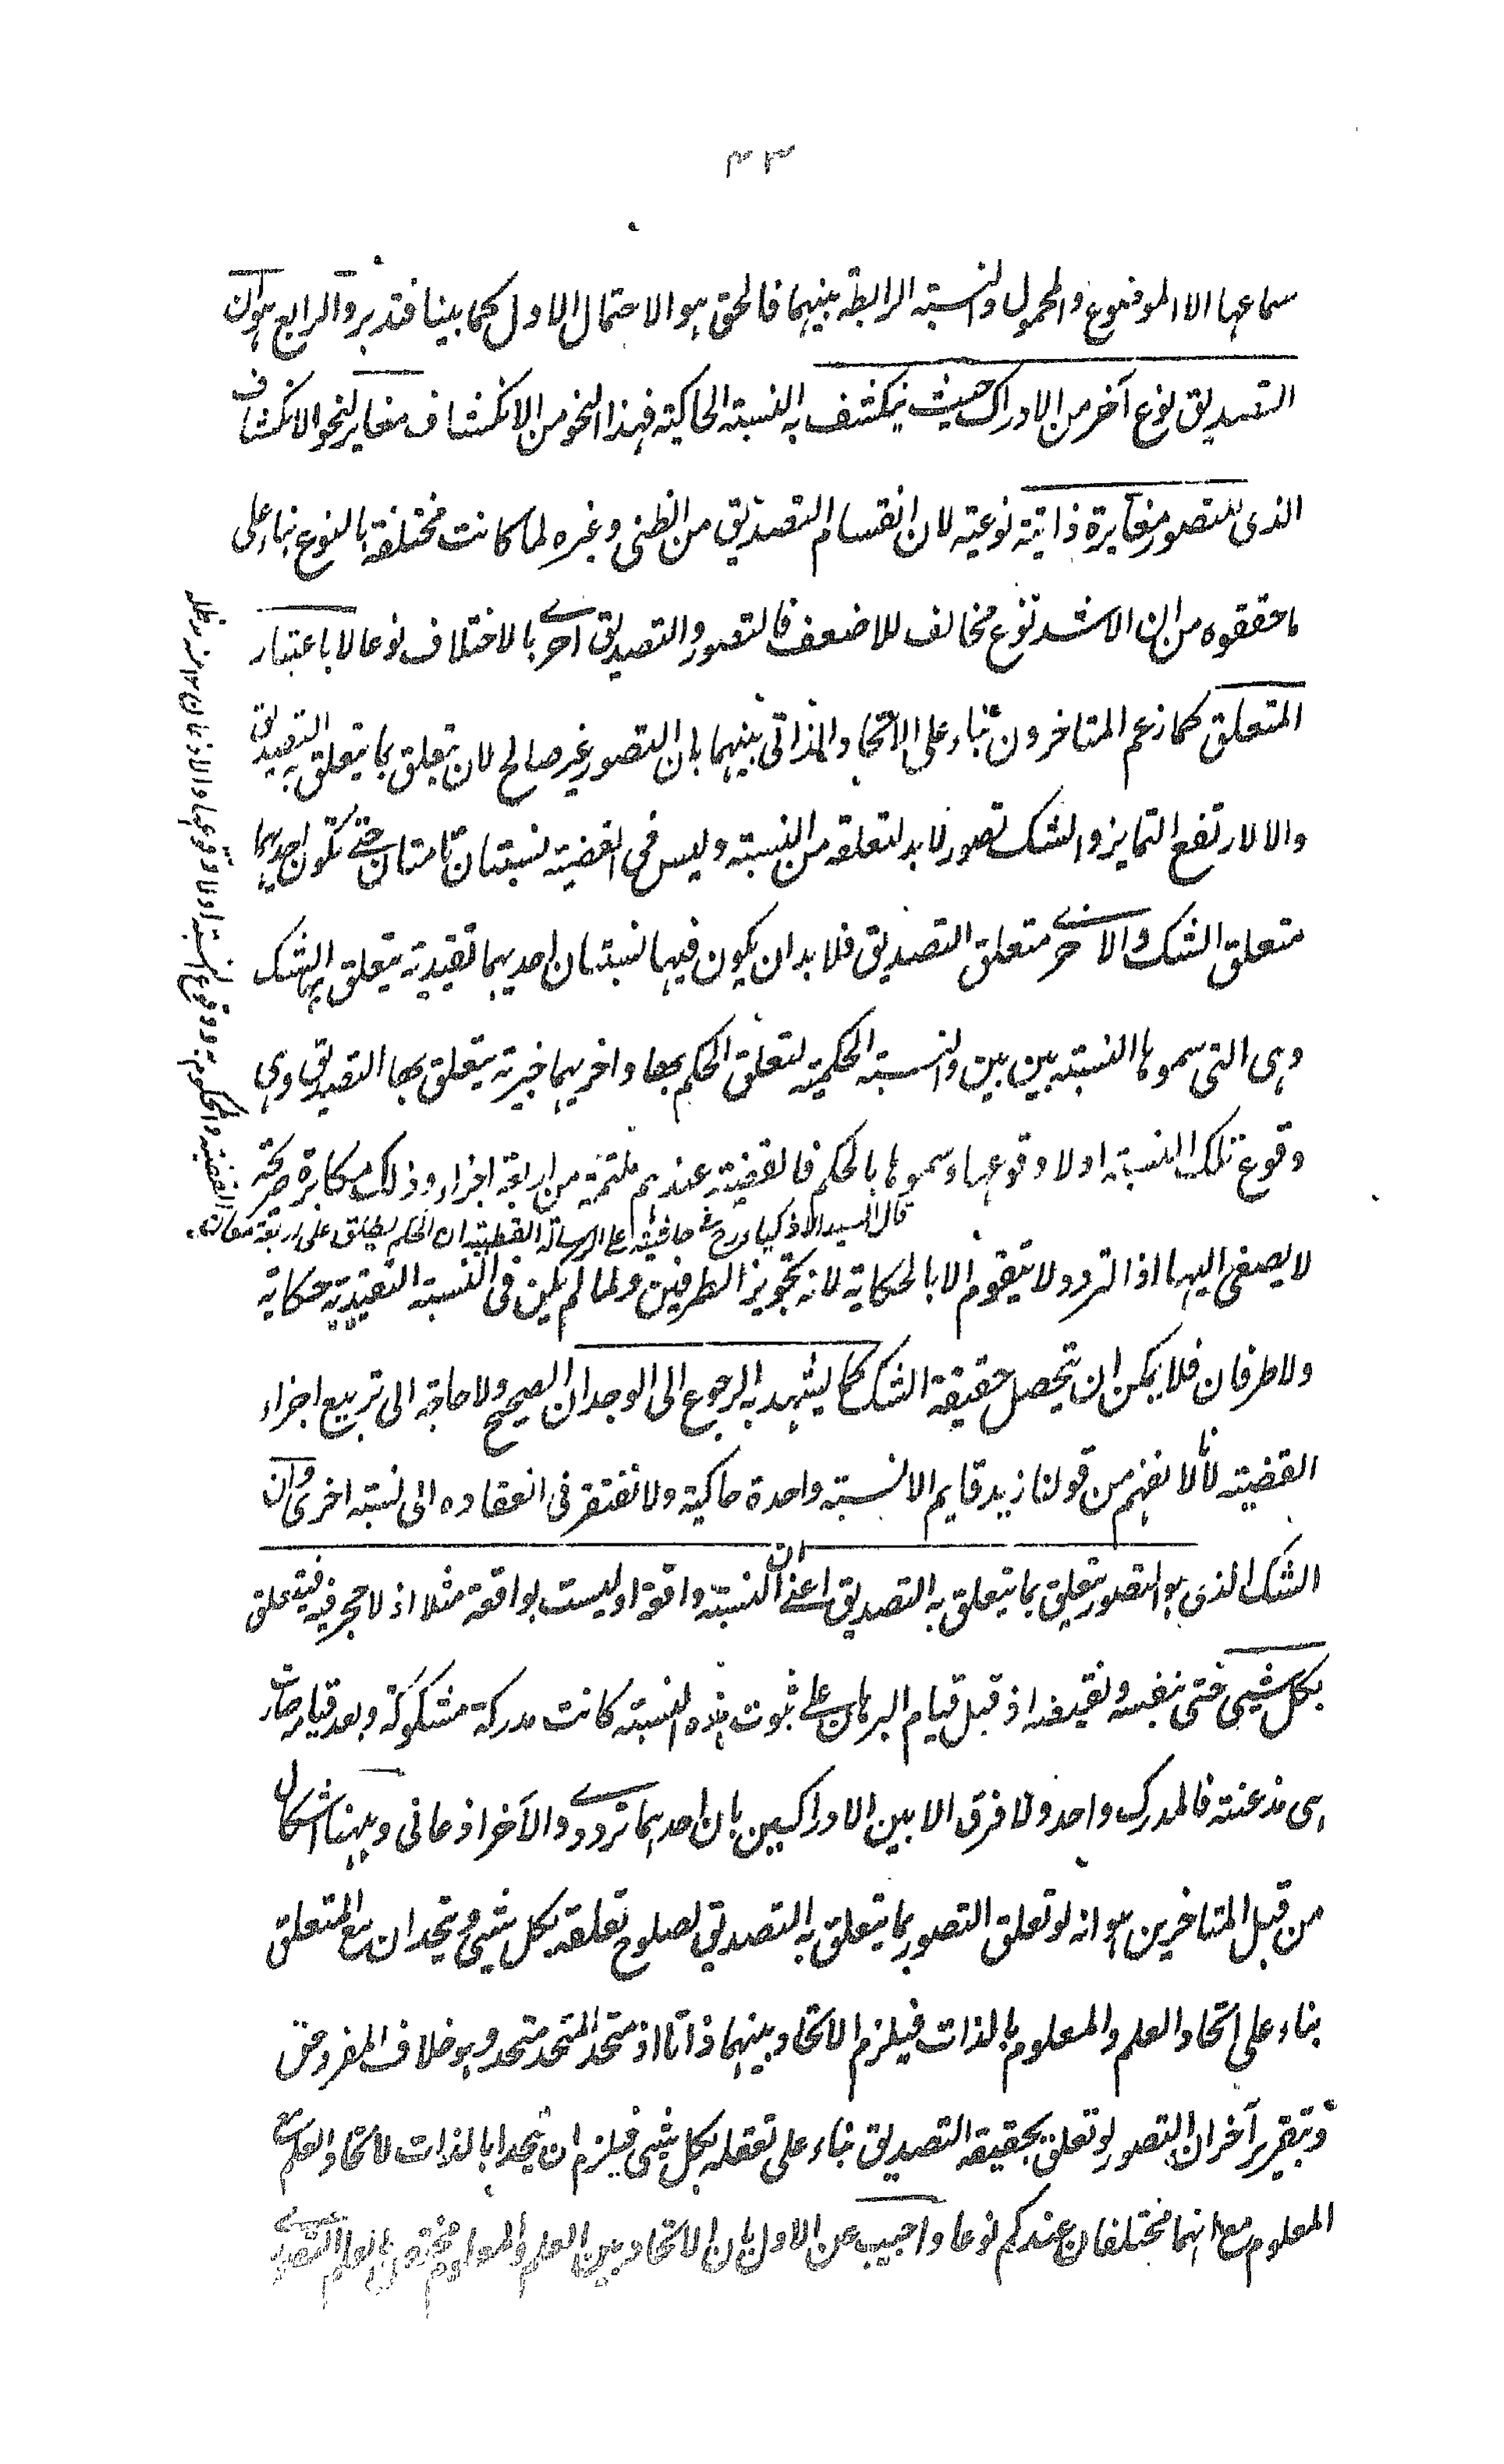 ٤٣
سماعها الا الموضوع والمحمول والنسبته الرابطة بينهما فالحق هو الاحتمال الاول كما بينا فتدبر والرابع هو ان
التصديق نوع آخر من الادراك حيث ينكشف به النسبته الحاكيته فهذا النحو من الانكشاف مغاير لنحو الانكشاف
الذى للتصور مغايرة ذاتية نوعية لان انقسام التصديق من الظنى وغيره لما كانت مختلفة بالنوع بناء على
ما حققوه من ان الاشد نوع مخالف للاضعف فالتصور والتصديق احرے بالاختلاف نوعا لا باعتبار
المتعلق كما زعم المتاخرون بناء على الاتحاد الذاتى بينهما بان التصور غير صالح لان يتعلق بما يتعلق به التصديق
والا لارتفع التمايز والشك تصور لا بد لتعلقه من النسبته وليس فى القضيته نسبتان تامتان حتے تكون احديهما
متعلق الشك والاخرے متعلق التصديق فلا بد ان يكون فيها نسبتان احديهما تقيدية يتعلق بها الشك
وهى التى سموها النسبته بين بين والنسبته الحكمية لتعلق الحكم بها واخريهما خبرية يتعلق بها التصديق وهى
وقوع تلك النسبته او لا وقوعها وسموها بالحكم فالقضيته عندهم ملتئمة من اربعة اجزاء وذلك مكابرة صريحة
قال السيد الاذكياء رح فے حاشيته على الرسالة القطبيته ان الحكم يطلق على اربعة معان
القضيته والمحكوم به ووقوع النسبته او لا وقوعها والاذعان
لا يصغى اليها اذ التردد لا يتقوم الا بالحكاية لانه تجويز الطرفين ولما لم يكن فى النسبته التقيدية حكاية
ولا طرفان فلا يمكن ان تحصل حقيقة الشك كما يشهد به الرجوع الى الوجدان الصحيح ولا حاجة الى تربيع اجزاء
القضيته لانا لا نفهم من قولنا زيد قايم الا نسبته واحدة حاكية ولا نفتقر فى انعقاده الى نسبته اخرى وان
الشك الذى هو التصور يتعلق بما يتعلق به التصديق اعنے ان النسبته واقعة او ليست بواقعة مثلا اذ لا حجر فيه فيتعلق
بكل شيى حتى بنفسه ونقيضه اذ قبل قيام البرهان على ثبوت هذه النسبته كانت مدركة مشكوكة وبعد قيامه صارت
هى مذعنته فالمدرك واحد ولا فرق الا بين الادراكين بان احديهما ترددے والآخر اذعانى وههنا اشكال
من قبل المتاخرين هو انه لو تعلق التصور بما يتعلق به التصديق لصلوح تعلقه بكل شيى يتحدان مع المتعلق
بناء على اتحاد العلم والمعلوم بالذات فيلزم الاتحاد بينهما ذاتا اذ متحد المتحد متحد وهو خلاف المفروض
وبتقرير آخر ان التصور لو تعلق بحقيقة التصديق بناء على تعقله بكل شيى فيلزم ان يتحدا بالذات لاتحاد العلم مع
المعلوم مع انهما مختلفان عندكم نوعا واجيب عن الاول بان الاتحاد بين العلم والمعلوم مختص بالعلم التصورے